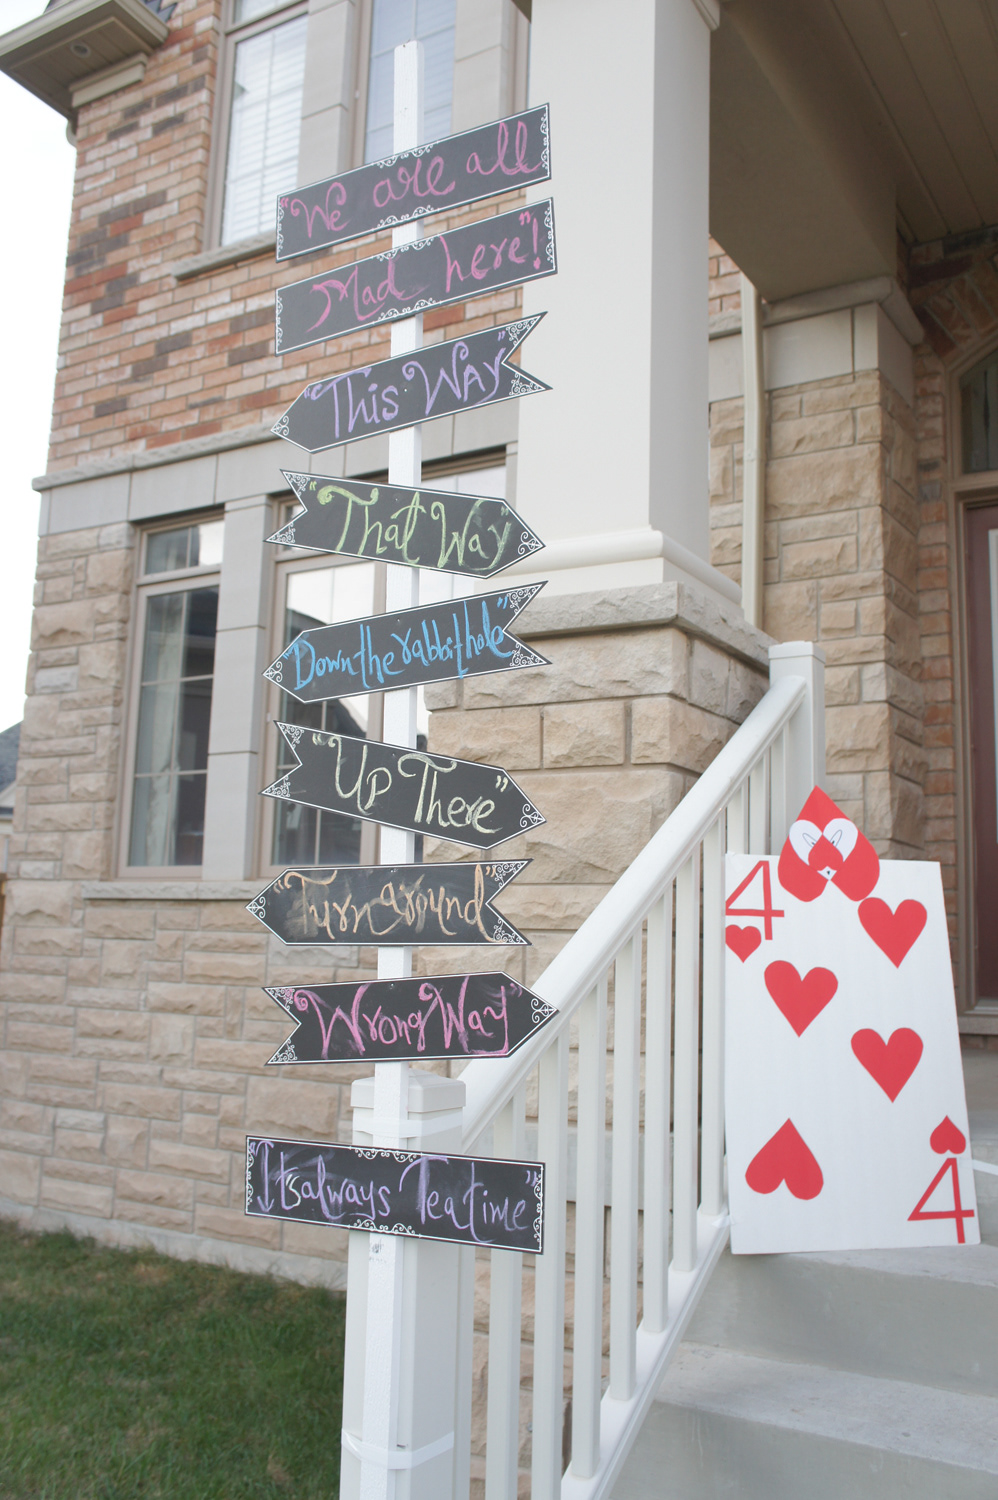 "We are all
Mad here"!
"This WAY"
"That Way"
"Down the rabbit hole"
"Up There"
"Turn around"
"Wrong Way"
"Itsalways Teatime"
4
4